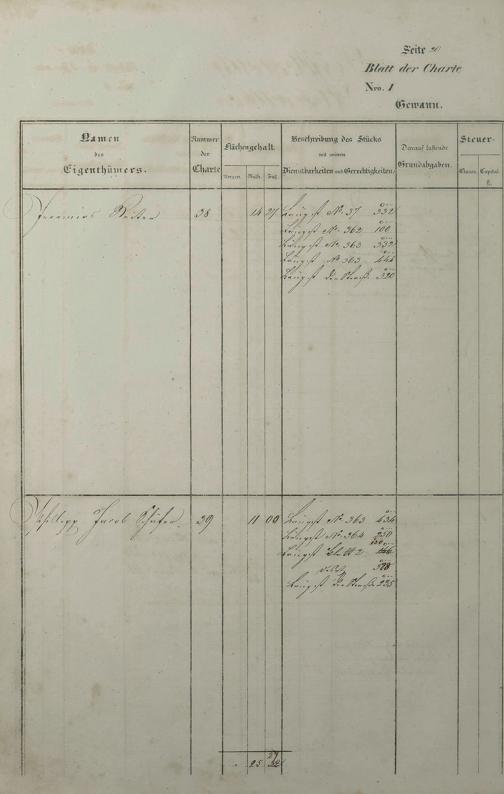 Seite 20
Blatt der Charte
Nro. 1
Gewann.
Namen
des
Eigenthümers.
Nummer
der
Charte
Flächengehalt
Morgen.
Rüth.
Fuß.
Beschreibung des Stücks
mit seinen
Dienstbarkeiten und Gerechtigkeiten.
Darauf lastende
Grundabgaben.
Steuer-
Classe.
Capital.
fl.
38 14 27 Längst No. 37 332
Längst No. 362 100
Längst No. 363 332
Längst No. 363
Längst der Straße 330
Philipp Jacob Schäfer 39 11 00 Längst No. 363 434
Längst No. 364 250
Längst Blatt 2
578
Längst der Straße 225
25